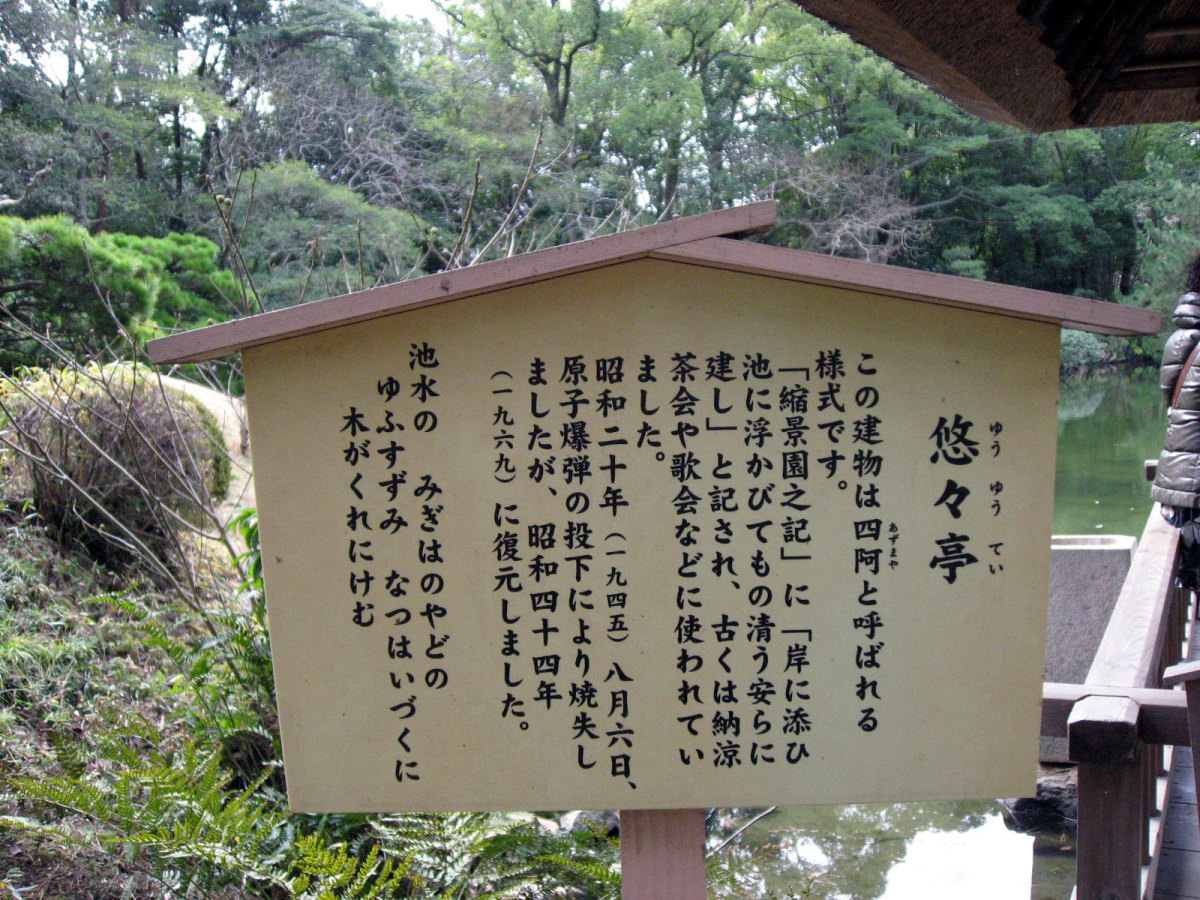 悠々亭
ゆうゆうてい
この建物は四阿と呼ばれる
あずまや
様式です。
「縮景園之記」に「岸に添ひ
池に浮かびてもの清う安らに
建し」と記され、古くは納涼
茶会や歌会などに使われてい
ました。
昭和二十年（一九四五）八月六日、
原子爆弾の投下により焼失し
ましたが、昭和四十四年
（一九六九）に復元しました。
池水の　みぎはのやどの
ゆふすずみ　なつはいづくに
木がくれにけむ